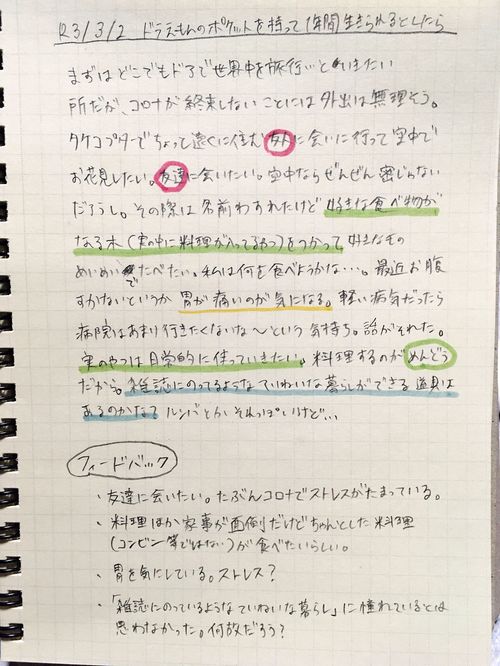 R3/3/2 ドラえもんのポケットを持って1年間生きられるとしたら
まずはどこでもドアで世界中を旅行…といきたい
所だが、コロナが終束しないことには外出は無理そう。
タケコプターでちょっと遠くに住む友人に会いに行って空中で
お花見したい。友達に会いたい。空中ならぜんぜん密じゃない
だろうし。その際は名前わすれたけど好きな食べ物が
なる木(実の中に料理が入ってるやつ)をつかって好きなもの
めいめいでたべたい。私は何を食べようかな…。最近お腹
すかないというか胃が痛いのが気になる。軽い病気だったら
病院はあまり行きたくないな〜という気持ち。話がそれた。
実のやつは日常的に使っていきたい。料理するのがめんどう
だから。雑誌にのってるようなていねいな暮らしができる道具は
あるのかなぁ?ルンバとかそれっぽいけど…
フィードバック
・友達に会いたい。たぶんコロナでストレスがたまっている。
・料理ほか家事が面倒だけどちゃんとした料理
(コンビニ等ではない)が食べたいらしい。
・胃を気にしている。ストレス?
・「雑誌にのっているようなていねいな暮らし」に憧れているとは
思わなかった。何故だろう?